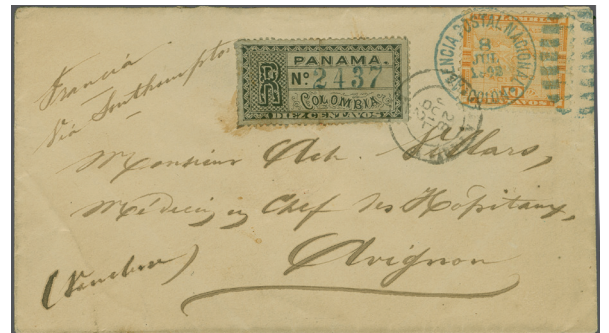 Francia
Via Southampton
PANAMA.
R Nº 2437
COLOMBIA
DIEZ CENTAVOS
AGENCIA POSTAL NACIONAL
8
COLON
CENTAVOS
Monsieur Ach. Villars,
Médecin en Chef des Hôpitaux,
Avignon
(Vaucluse)